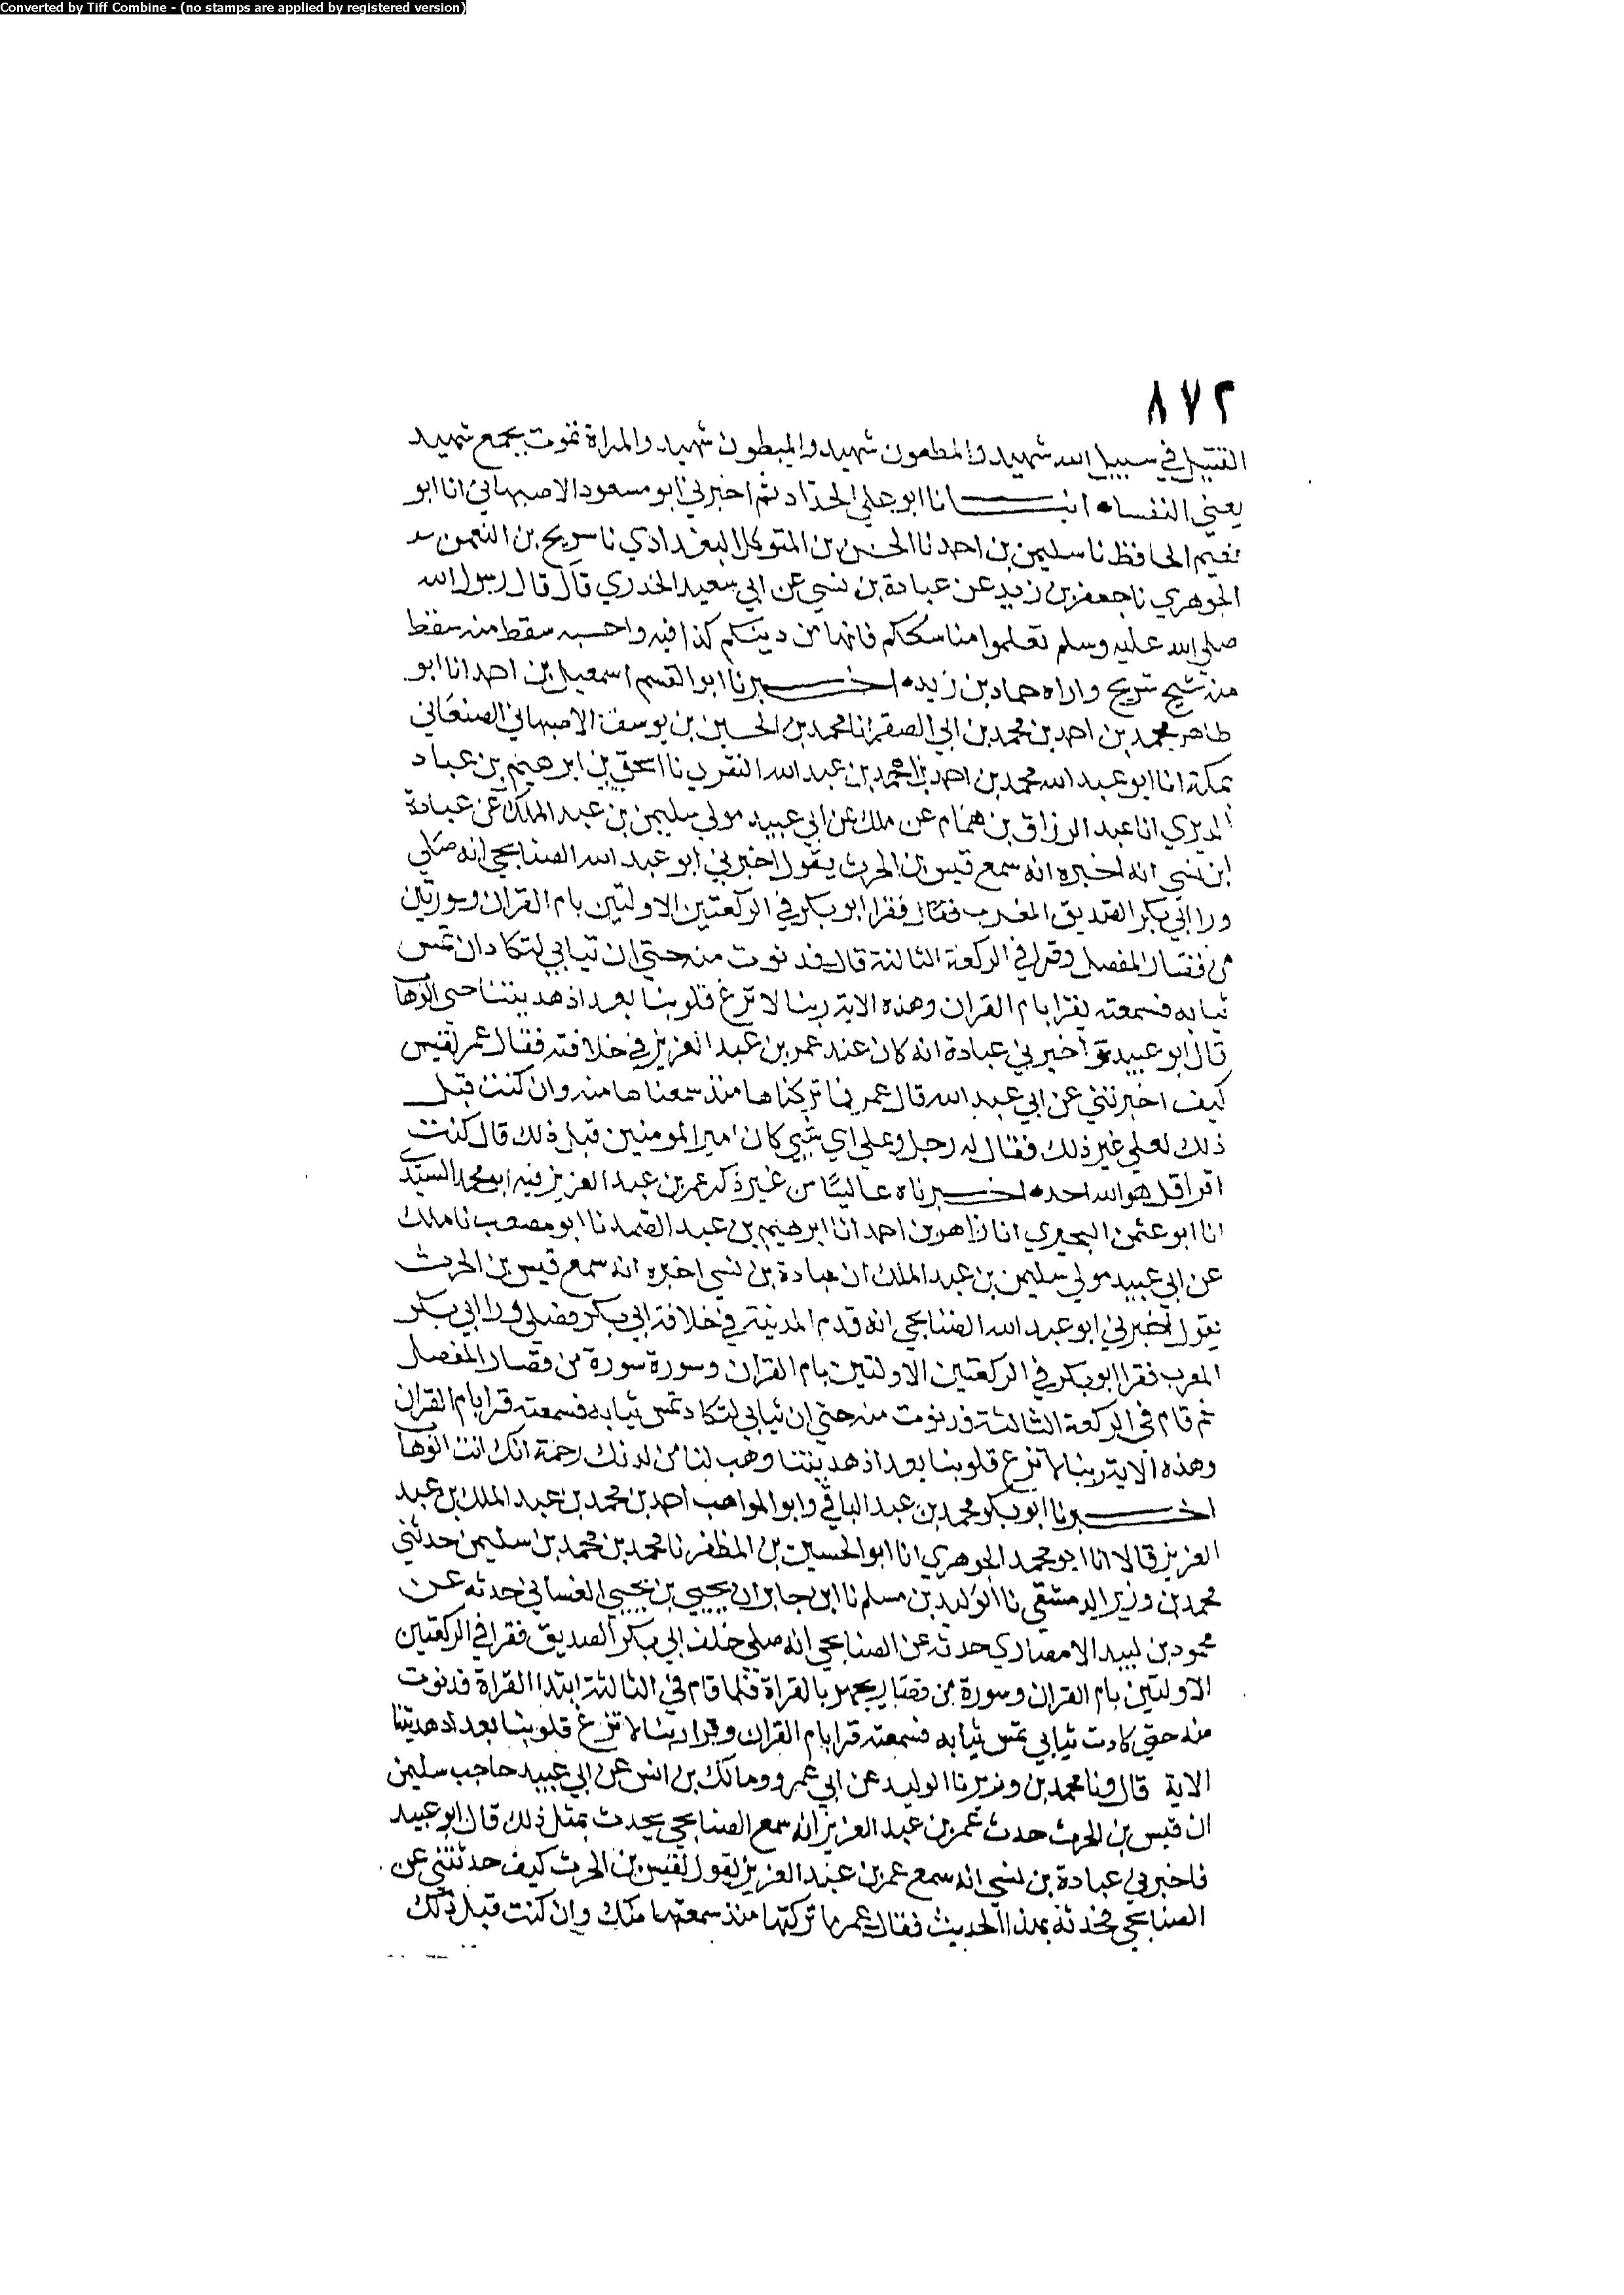 Converted by Tiff Combine - (no stamps are applied by registered version)
٨٧٢
القتيل في سبيل الله شهيد والمطعون شهيد والمبطون شهيد والمراة تموت بجمع شهيد
يعني النفساء انبــــانا ابو علي الحداد ثم اخبرني ابو مسعود الاصبهاني انا ابو
نعيم الحافظ نا سليمن بن احمد نا الحسن بن المتوكل البغدادي نا سريج بن النعمن
الجوهري نا جعفر بن زيد عن عبادة بن نسي عن ابي سعيد الخدري قال قال رسول الله
صلى الله عليه وسلم تعلموا مناسككم فانها من دينكم كذا فيه واحسبه سقط منه سقط
منه شيخ سريج واراه حماد بن زيد اخــــبرنا ابو القسم اسمعيل بن احمد انا ابو
طاهر محمد بن احمد بن محمد بن ابي الصقر انا محمد بن الحسين بن يوسف الاصبهاني الصنعاني
بمكة انا ابو عبد الله محمد بن احمد بن عبد الله النقوي نا اسحق بن ابرهيم بن عباد
الدبري انا عبد الرزاق بن همام عن ملك عن ابي عبيد مولي سليمن بن عبد الملك عن عبادة
ابن نسي انه اخبره انه سمع قيس بن الحرث يقول اخبرني ابو عبد الله الصنابحي انه صلي
ورا ابي بكر الصديق المغرب فقرا ابو بكر في الركعتين الاولتين بام القران وسورتين
من قصار المفصل وقرا في الركعة الثالثة قال فدنوت منه حتي ان ثيابي لتكاد ان تمس
ثيابه فسمعته يقرا بام القران وهذه الاية ربنا لا تزغ قلوبنا بعد اذ هديتنا حتى الوهاب
قال ابو عبيد واخبرني عبادة انه كان عند عمر بن عبد العزيز في خلافته فقال عمر لقيس
كيف اخبرتني عن ابي عبد الله قال عمر فما تركناها منذ سمعناها منه وان كنت قبل
ذلك لعلي غير ذلك فقال له رجل وعلي اي شي كان امير المومنين قبل ذلك قال كنت
اقرا قل هو الله احد اخــــبرناه عاليًا من غير ذكر عمر بن عبد العزيز فيه ابو محمد السيدي
انا ابو عثمن البحيري انا زاهر بن احمد انا ابرهيم بن عبد الصمد نا ابو مصعب نا ملك
عن ابي عبيد مولي سليمن بن عبد الملك ان عبادة بن نسي اخبره انه سمع قيس بن الحرث
يقول اخبرني ابو عبد الله الصنابحي انه قدم المدينة في خلافة ابي بكر فصلي ورا ابي بكر
المغرب فقرا ابو بكر في الركعتين الاولتين بام القران وسورة سورة من قصار المفصل
ثم قام في الركعة الثالثة فدنوت منه حتي ان ثيابي لتكاد تمس ثيابه فسمعته قرا بام القران
وهذه الاية ربنا لا تزغ قلوبنا بعد اذ هديتنا وهب لنا من لدنك رحمة انك انت الوهاب
اخــــبرنا ابو بكر محمد بن عبد الباقي وابو المواهب احمد بن محمد بن عبد الملك بن عبد
العزيز قالا انا ابو محمد الجوهري انا ابو الحسين بن المظفر نا محمد بن محمد بن سليمن حدثني
محمد بن وزير الدمشقي نا الوليد بن مسلم نا ابن جابر ان يحيي بن يحيي الغساني حدثه عن
محمود بن لبيد الانصاري حدثه عن الصنابحي انه صلي خلف ابي بكر الصديق فقرا في الركعتين
الاولتين بام القران وسورة من قصار يجهر بالقراة فلما قام في الثالثة ابتدا القراة فدنوت
منه حتي كادت ثيابي تمس ثيابه فسمعته قرا بام القران وقرا ربنا لا تزغ قلوبنا بعد اذ هديتنا
الاية قال ونا محمد بن وزير نا الوليد عن ابي عمرو ومالك بن انس عن ابي عبيد حاجب سليمن
ان قيس بن الحرث حدث عمر بن عبد العزيز انه سمع الصنابحي يحدث بمثل ذلك قال ابو عبيد
فاخبرني عبادة بن نسي انه سمع عمر بن عبد العزيز يقول لقيس بن الحرث كيف حدثتني عن
الصنابحي فحدثه بهذا الحديث فقال عمر ما تركتها منذ سمعتها منك وان كنت قبل ذلك